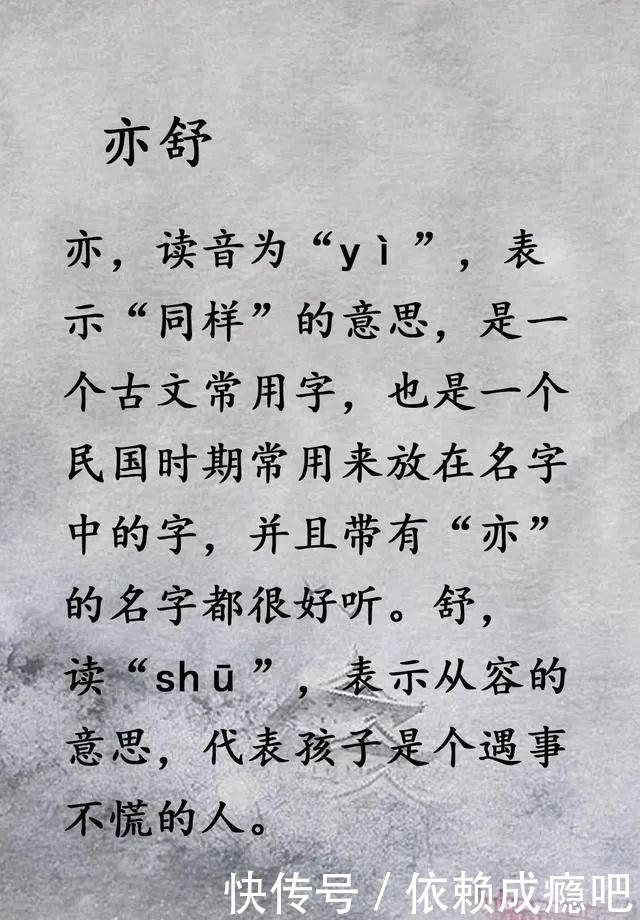 亦舒
亦，读音为“yì”，表
示“同样”的意思，是一
个古文常用字，也是一个
民国时期常用来放在名字
中的字，并且带有“亦”
的名字都很好听。舒，
读“shū”，表示从容的
意思，代表孩子是个遇事
不慌的人。
快传号/依赖成瘾吧